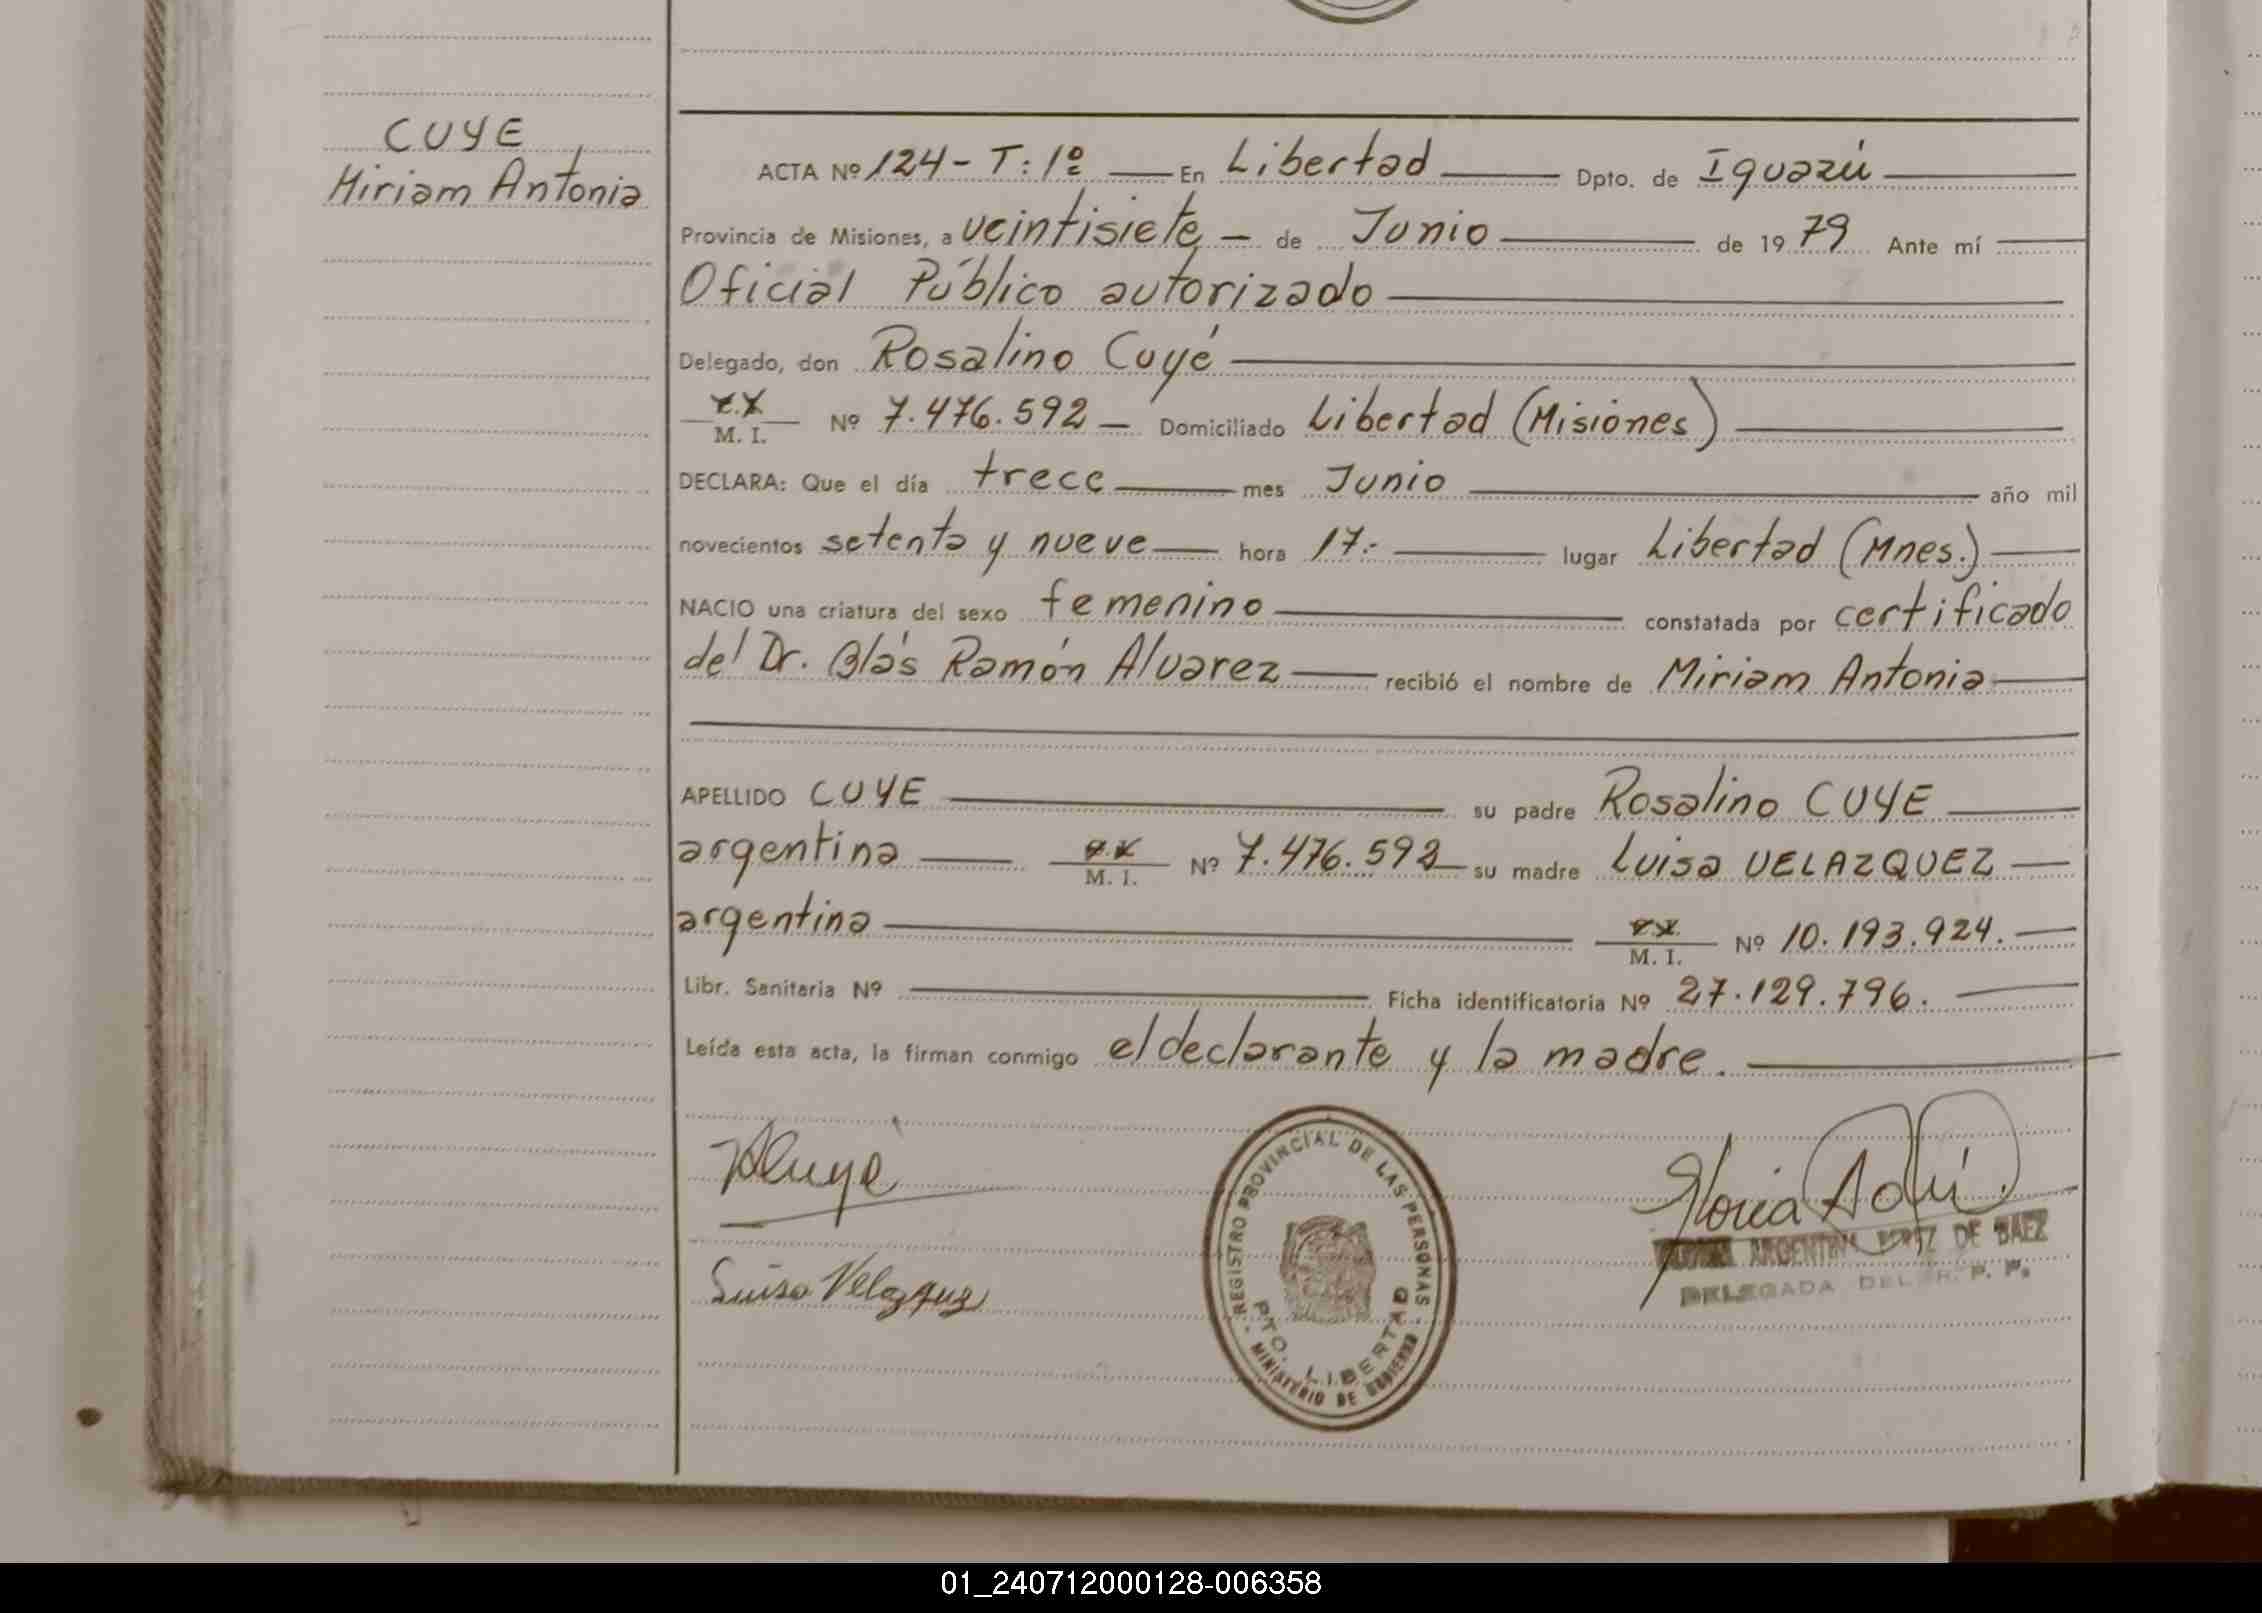 CUYE
Miriam Antonia
ACTA Nº 124 - T: 1º — En Libertad — Dpto. de Iguazú —
Provincia de Misiones, a veintisiete — de Junio — de 19 79 Ante mí —
Oficial Público autorizado —
Delegado, don Rosalino Cuyé —
M. I. Nº 7.476.592 — Domiciliado Libertad (Misiones) —
DECLARA: Que el día trece — mes Junio — año mil
novecientos setenta y nueve — hora 17.- — lugar Libertad (Mnes.) —
NACIO una criatura del sexo femenino — constatada por certificado
del Dr. Blás Ramón Alvarez — recibió el nombre de Miriam Antonia —
APELLIDO CUYE — su padre Rosalino CUYE —
argentina — M. I. Nº 7.476.592 — su madre Luisa VELAZQUEZ —
argentina — M. I. Nº 10.193.924. —
Libr. Sanitaria Nº — Ficha identificatoria Nº 27.129.796. —
Leída esta acta, la firman conmigo el declarante y la madre. —
Luisa Velazquez
REGISTRO PROVINCIAL DE LAS PERSONAS
PTO. LIBERTAD
- MINISTERIO DE GOBIERNO -
Gloria
ARGENTINA PEREZ DE BAEZ
DELEGADA DEL R. P. P.
01_240712000128-006358